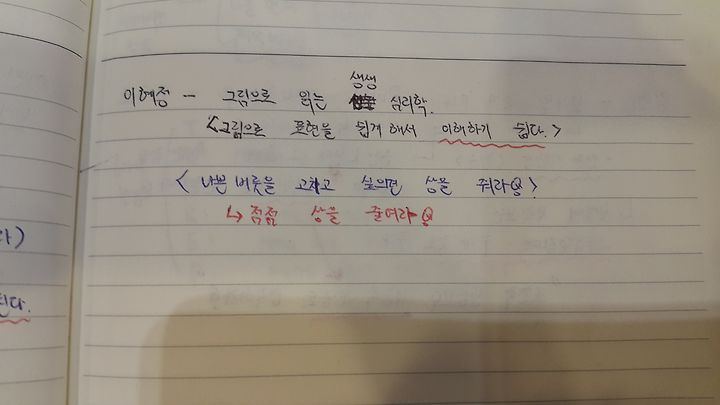 이혜정 - 그림으로 읽는 생생 심리학.
<그림으로 표현을 쉽게 해서 이해하기 쉽다.>
<나쁜 버릇을 고치고 싶으면 상을 줘라>
↳ 점점 상을 줄여라
라)
된다.